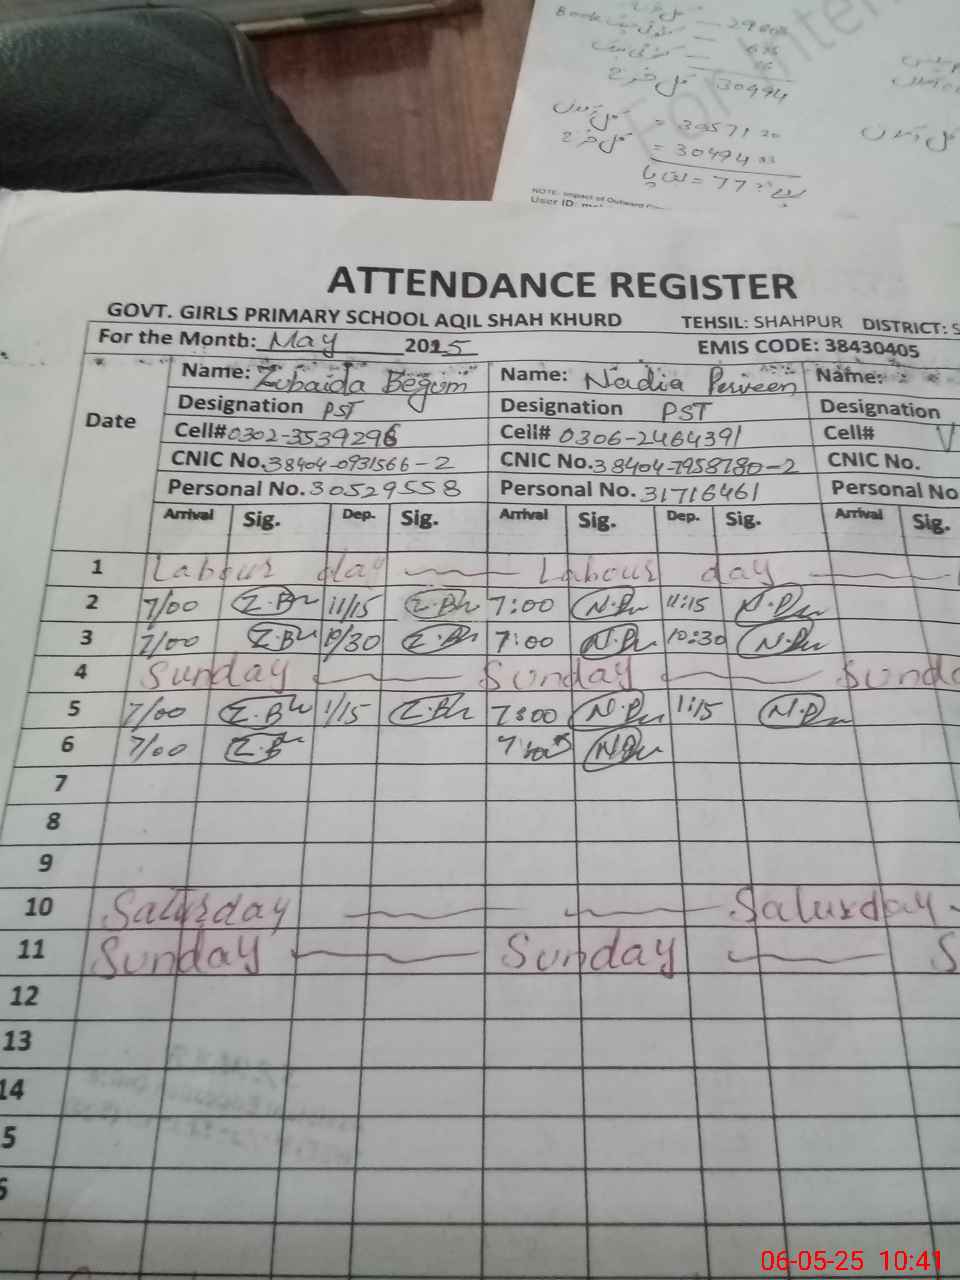 Book
30494
= 30494
= 77
NOTE: Impact of Outward
User ID:
ATTENDANCE REGISTER
GOVT. GIRLS PRIMARY SCHOOL AQIL SHAH KHURD TEHSIL: SHAHPUR DISTRICT: S
For the Month: May 2025 EMIS CODE: 38430405
Date Name: Zubaida Begum Name: Nadia Perveen Name:
Designation PST Designation PST Designation
Cell# 0302-3539296 Cell# 0306-2464391 Cell#
CNIC No. 38404-0931566-2 CNIC No. 38404-7958780-2 CNIC No.
Personal No. 30529558 Personal No. 31716461 Personal No
Arrival Sig. Dep. Sig. Arrival Sig. Dep. Sig. Arrival Sig.
1 Labour day Labour day
2 7/00 Z.B 11/15 Z.B 7:00 N.P 11:15 N.P
3 7/00 Z.B 10/30 Z.B 7:00 N.P 10:30 N.P
4 Sunday Sunday Sunda
5 7/00 Z.B 1/15 Z.B 7:00 N.P 1:15 N.P
6 7/00 Z.B N.P
7
8
9
10 Saturday Saturday
11 Sunday Sunday S
12
13
14
5
06-05-25 10:41